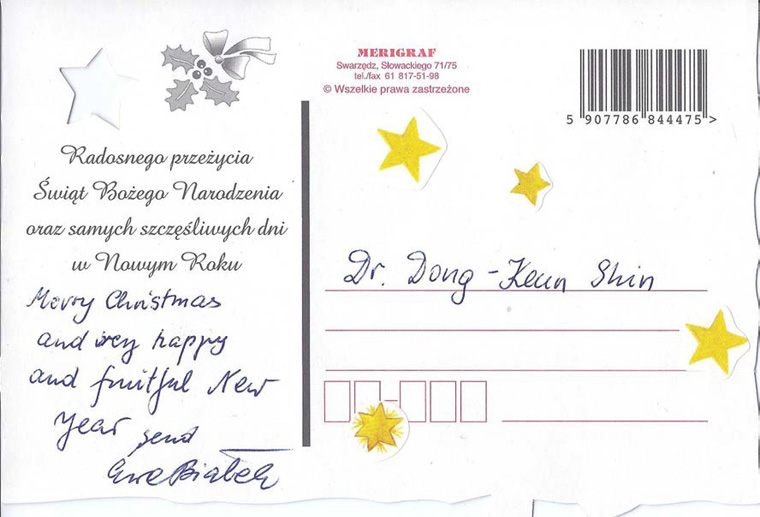 MERIGRAF
Swarzędz, Słowackiego 71/75
tel./fax 61 817-51-98
© Wszelkie prawa zastrzeżone
5 907786 844475 >
Radosnego przeżycia
Świąt Bożego Narodzenia
oraz samych szczęśliwych dni
w Nowym Roku
Merry Christmas
and very happy
and fruitful New
Year send
Ewa Białek
Dr. Dong-Keun Shin